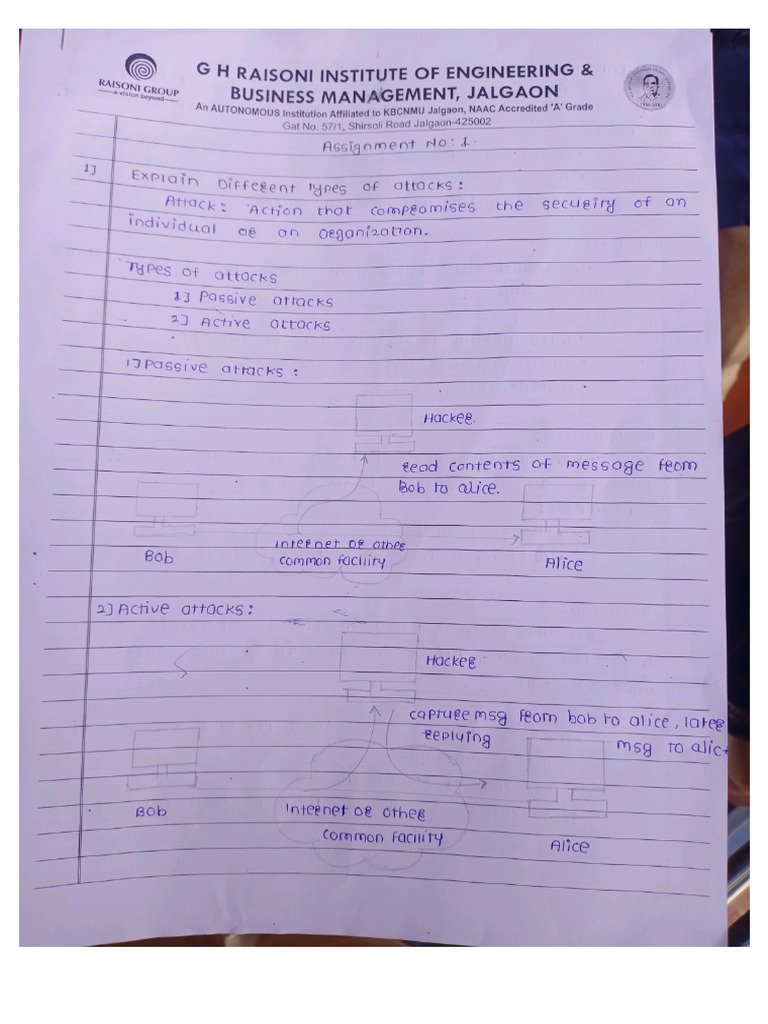 RAISONI GROUP
a vision beyond
G H RAISONI INSTITUTE OF ENGINEERING &
BUSINESS MANAGEMENT, JALGAON
An AUTONOMOUS Institution Affiliated to KBCNMU Jalgaon, NAAC Accredited 'A' Grade
Gat No. 57/1, Shirsoli Road Jalgaon-425002
Assignment No: 1.
1] Explain Different types of attacks:
Attack: Action that compromises the security of an
individual or an organization.
Types of attacks
1] Passive attacks
2] Active attacks
1] Passive attacks:
Hacker.
read contents of message from
Bob to alice.
Internet or other
common facility
Bob
Alice
2] Active attacks:
Hacker
capture msg from bob to alice, later
replying msg to alic
Bob
Internet or other
common facility
Alice